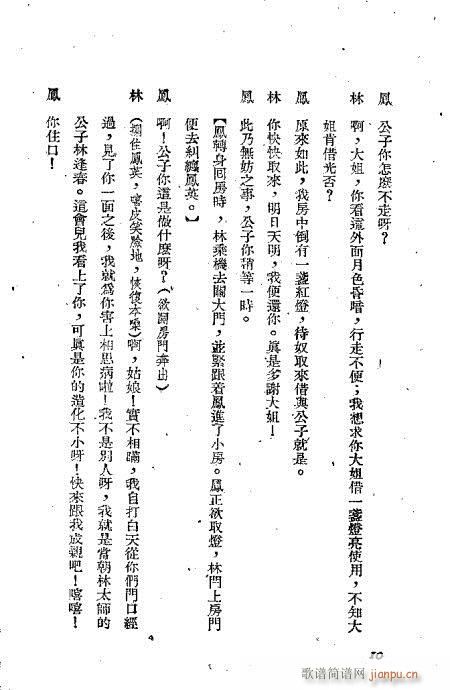 鳳　公子你怎麽不走呀？
林　啊，大姐，你看這外面月色昏暗，行走不便；我想求你大姐借一盞燈亮使用，不知大
姐肯借光否？
鳳　原來如此，我房中倒有一盞紅燈，待奴取來借與公子就是。
林　你快快取來，明日天明，我便還你。真是多謝大姐！
鳳　此乃無妨之事，公子你稍等一時。
【鳳轉身回房時，林乘機去關大門，並緊跟着鳳進了小房。鳳正欲取燈，林閂上房門
便去糾纏鳳英。】
鳳　啊！公子你這是做什麽呀？（欲開房門奔出）
林　（攔住鳳英，嘻皮笑臉地，恢復本嗓）啊，姑娘！實不相瞞，我自打白天從你們門口經
過，見了你一面之後，我就爲你害上相思病啦！我不是别人呀，我就是當朝林太師的
公子林逢春。這會兒我看上了你，可真是你的造化不小呀！快來跟我成親吧！嘻嘻！
鳳　你住口！
10
歌谱简谱网
jianpu.cn